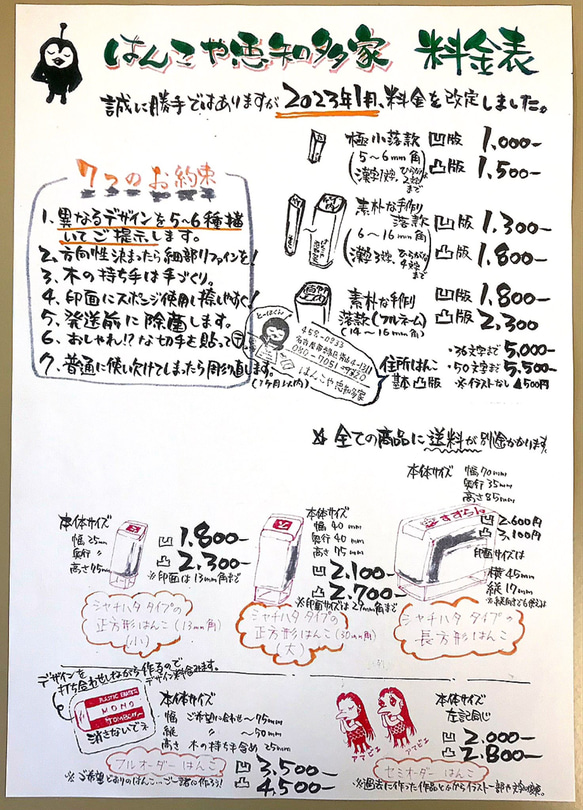 はんこや恵知多家 料金表
誠に勝手ではありますが2023年1月、料金を改定しました。
極小落款 凹版 1,000-
(5~6mm角) 凸版 1,500-
7つのお約束
1、異なるデザインを5~6種描
いてご提示します。
2、方向性決まったら細部リファインを!
3、木の持ち手は手づくり。
4、印面にスポンジ使用し捺しやすく!
5、発送前に除菌します。
6、おしゃれ!?な切手を貼って〒
7、普通に使い欠けてしまったら彫り直します。
(1ヶ月以内)
素朴な手作り
落款 凹版 1,300-
(6~16mm角) 凸版 1,800-
素朴な手作り 凹版 1,800-
落款(フルネーム) 凸版 2,300
(14~16mm角)
458-0933
はんこや恵知多家
住所はんこ ・36文字まで 5,000-
基本凸版 ・50文字まで 5,500-
※イラストなし 4,500円
全ての商品に送料が別途かかります。
本体サイズ
幅 25mm
奥行 〃
高さ 75mm
凹 1,800-
凸 2,300-
※印面は13mm角まで
シャチハタタイプの
正方形はんこ(13mm角)
(小)
本体サイズ
幅 40mm
奥行 40mm
高さ 75mm
凹 2,100-
凸 2,700-
※印面サイズは29mm角まで
シャチハタタイプの
正方形はんこ(30mm角)
(大)
本体サイズ 幅 70mm
奥行 35mm
高さ 85mm
すずらん
凹 2,600円
凸 3,100円
印面サイズは
横 45mm
縦 17mm
シャチハタタイプの
長方形はんこ
デザインを
打ち合わせしながら作るので
デザイン料含みます。
PLASTIC ERASER
MONO
TOMBOW
消さないでネ
本体サイズ
幅 ご希望に合わせ~75mm
縦 〃 ~50mm
高さ 木の持ち手含め 25mm
フルオーダーはんこ
凹 3,500-
凸 4,500-
※ご希望どおりのはんこ…ご一緒に作ろう!
アマビエ アマビエ
本体サイズ
左に同じ
凹 2,000-
凸 2,800-
セミオーダーはんこ